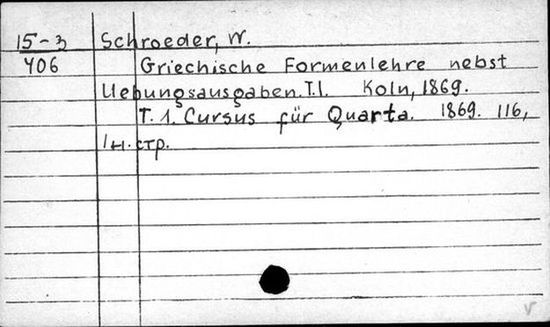 15-3 Schroeder, W.
406 Griechische Formenlehre nebst
Uebungsausgaben. T.1. Koln, 1869.
T. 1. Cursus für Quarta. 1869. 116,
1 н. стр.